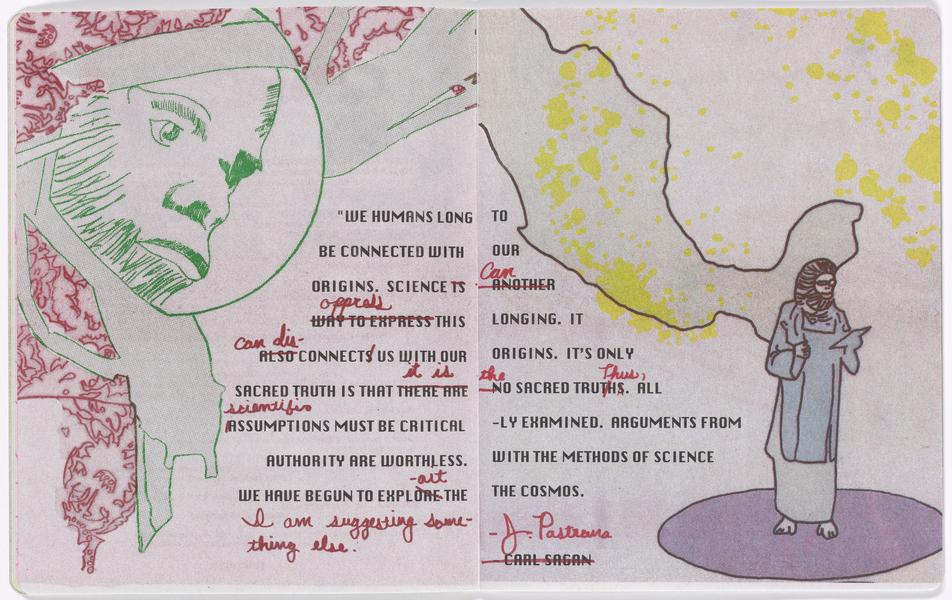 "WE HUMANS LONG TO
BE CONNECTED WITH OUR
Can
ORIGINS. SCIENCE IS ANOTHER
oppress
WAY TO EXPRESS THIS LONGING. IT
can dis-
ALSO CONNECTS US WITH OUR ORIGINS. IT'S ONLY
it is the Thus,
SACRED TRUTH IS THAT THERE ARE NO SACRED TRUTHS. ALL
scientific
ASSUMPTIONS MUST BE CRITICAL-LY EXAMINED. ARGUMENTS FROM
AUTHORITY ARE WORTHLESS. WITH THE METHODS OF SCIENCE
-oit
WE HAVE BEGUN TO EXPLORE THE THE COSMOS.
I am suggesting some-
thing else.
-J. Pastrana
CARL SAGAN